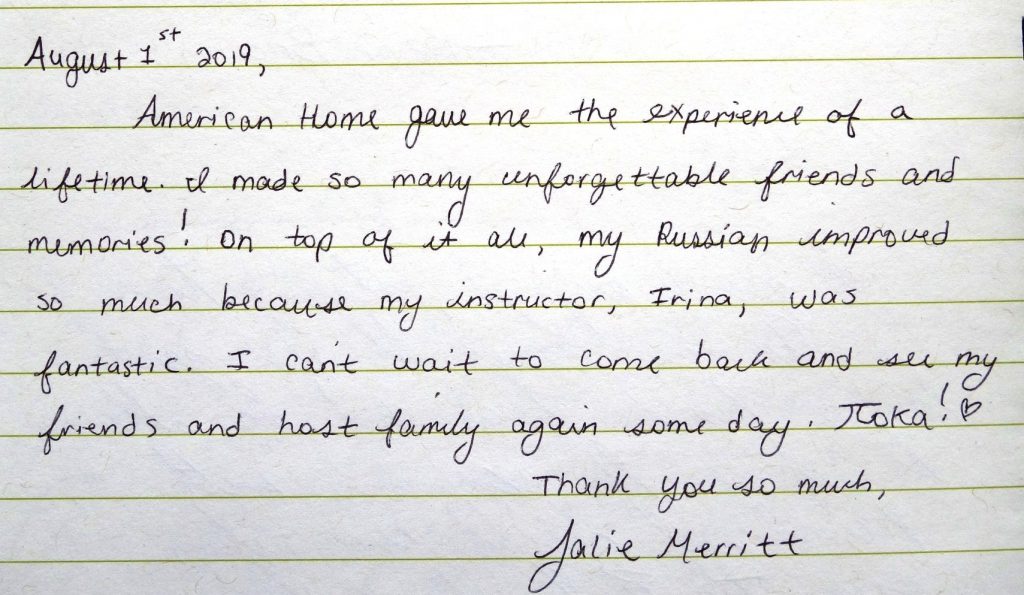 August 1st 2019,
American Home gave me the experience of a
lifetime. I made so many unforgettable friends and
memories! On top of it all, my Russian improved
so much because my instructor, Irina, was
fantastic. I can't wait to come back and see my
friends and host family again some day. Пока! ♡
Thank you so much,
Jalie Merritt